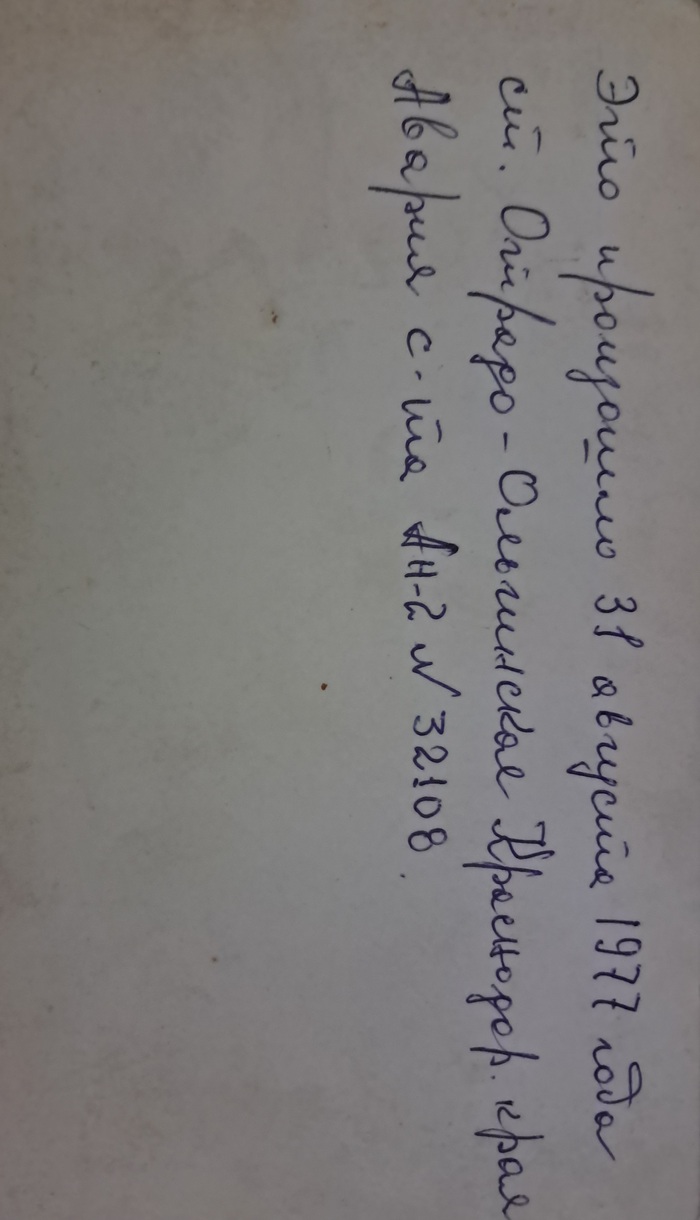 Это произошло 31 августа 1977 года
ст. Отрадо-Ольгинское Краснодар. края
Авария с-та Ан-2 N 32108.